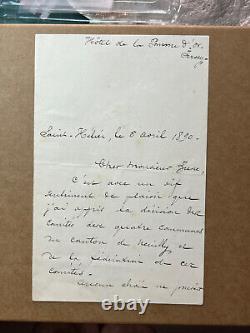 Hôtel de la Pomme d'Or
Jersey
Saint-Hélier, le 8 avril 1890
Cher Monsieur
C'est avec un vif
sentiment de plaisir que
j'ai appris la décision des
comités des quatre communes
du canton de Neuilly et
de la fédération de ces
comités.
Aucun choix ne pouvait